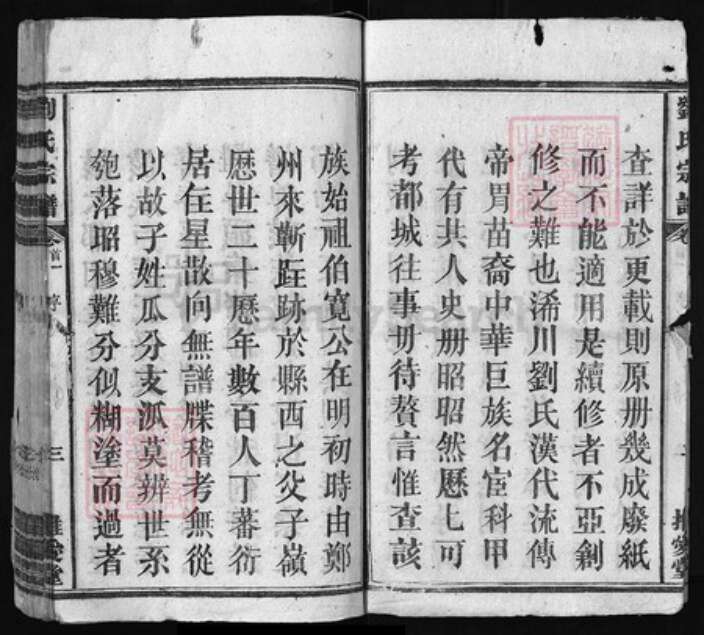 查詳於更載則原册幾成廢紙
而不能適用是續修者不亞創
修之難也浠川劉氏漢代流傳
帝胃苗裔中華巨族名宦科甲
代有其人史册昭昭然歷七可
考都城往事毋待贅言惟查該
族始祖伯寬公在明初時由鄭
州來蘄跓跡於縣西之父子嶺
歷世二十歷年數百人丁蕃衍
居住星散向無譜牒稽考無從
以故子姓瓜分支派莫辨世系
匏落昭穆難分似糊塗而過者
劉氏宗譜
卷首一
序
三